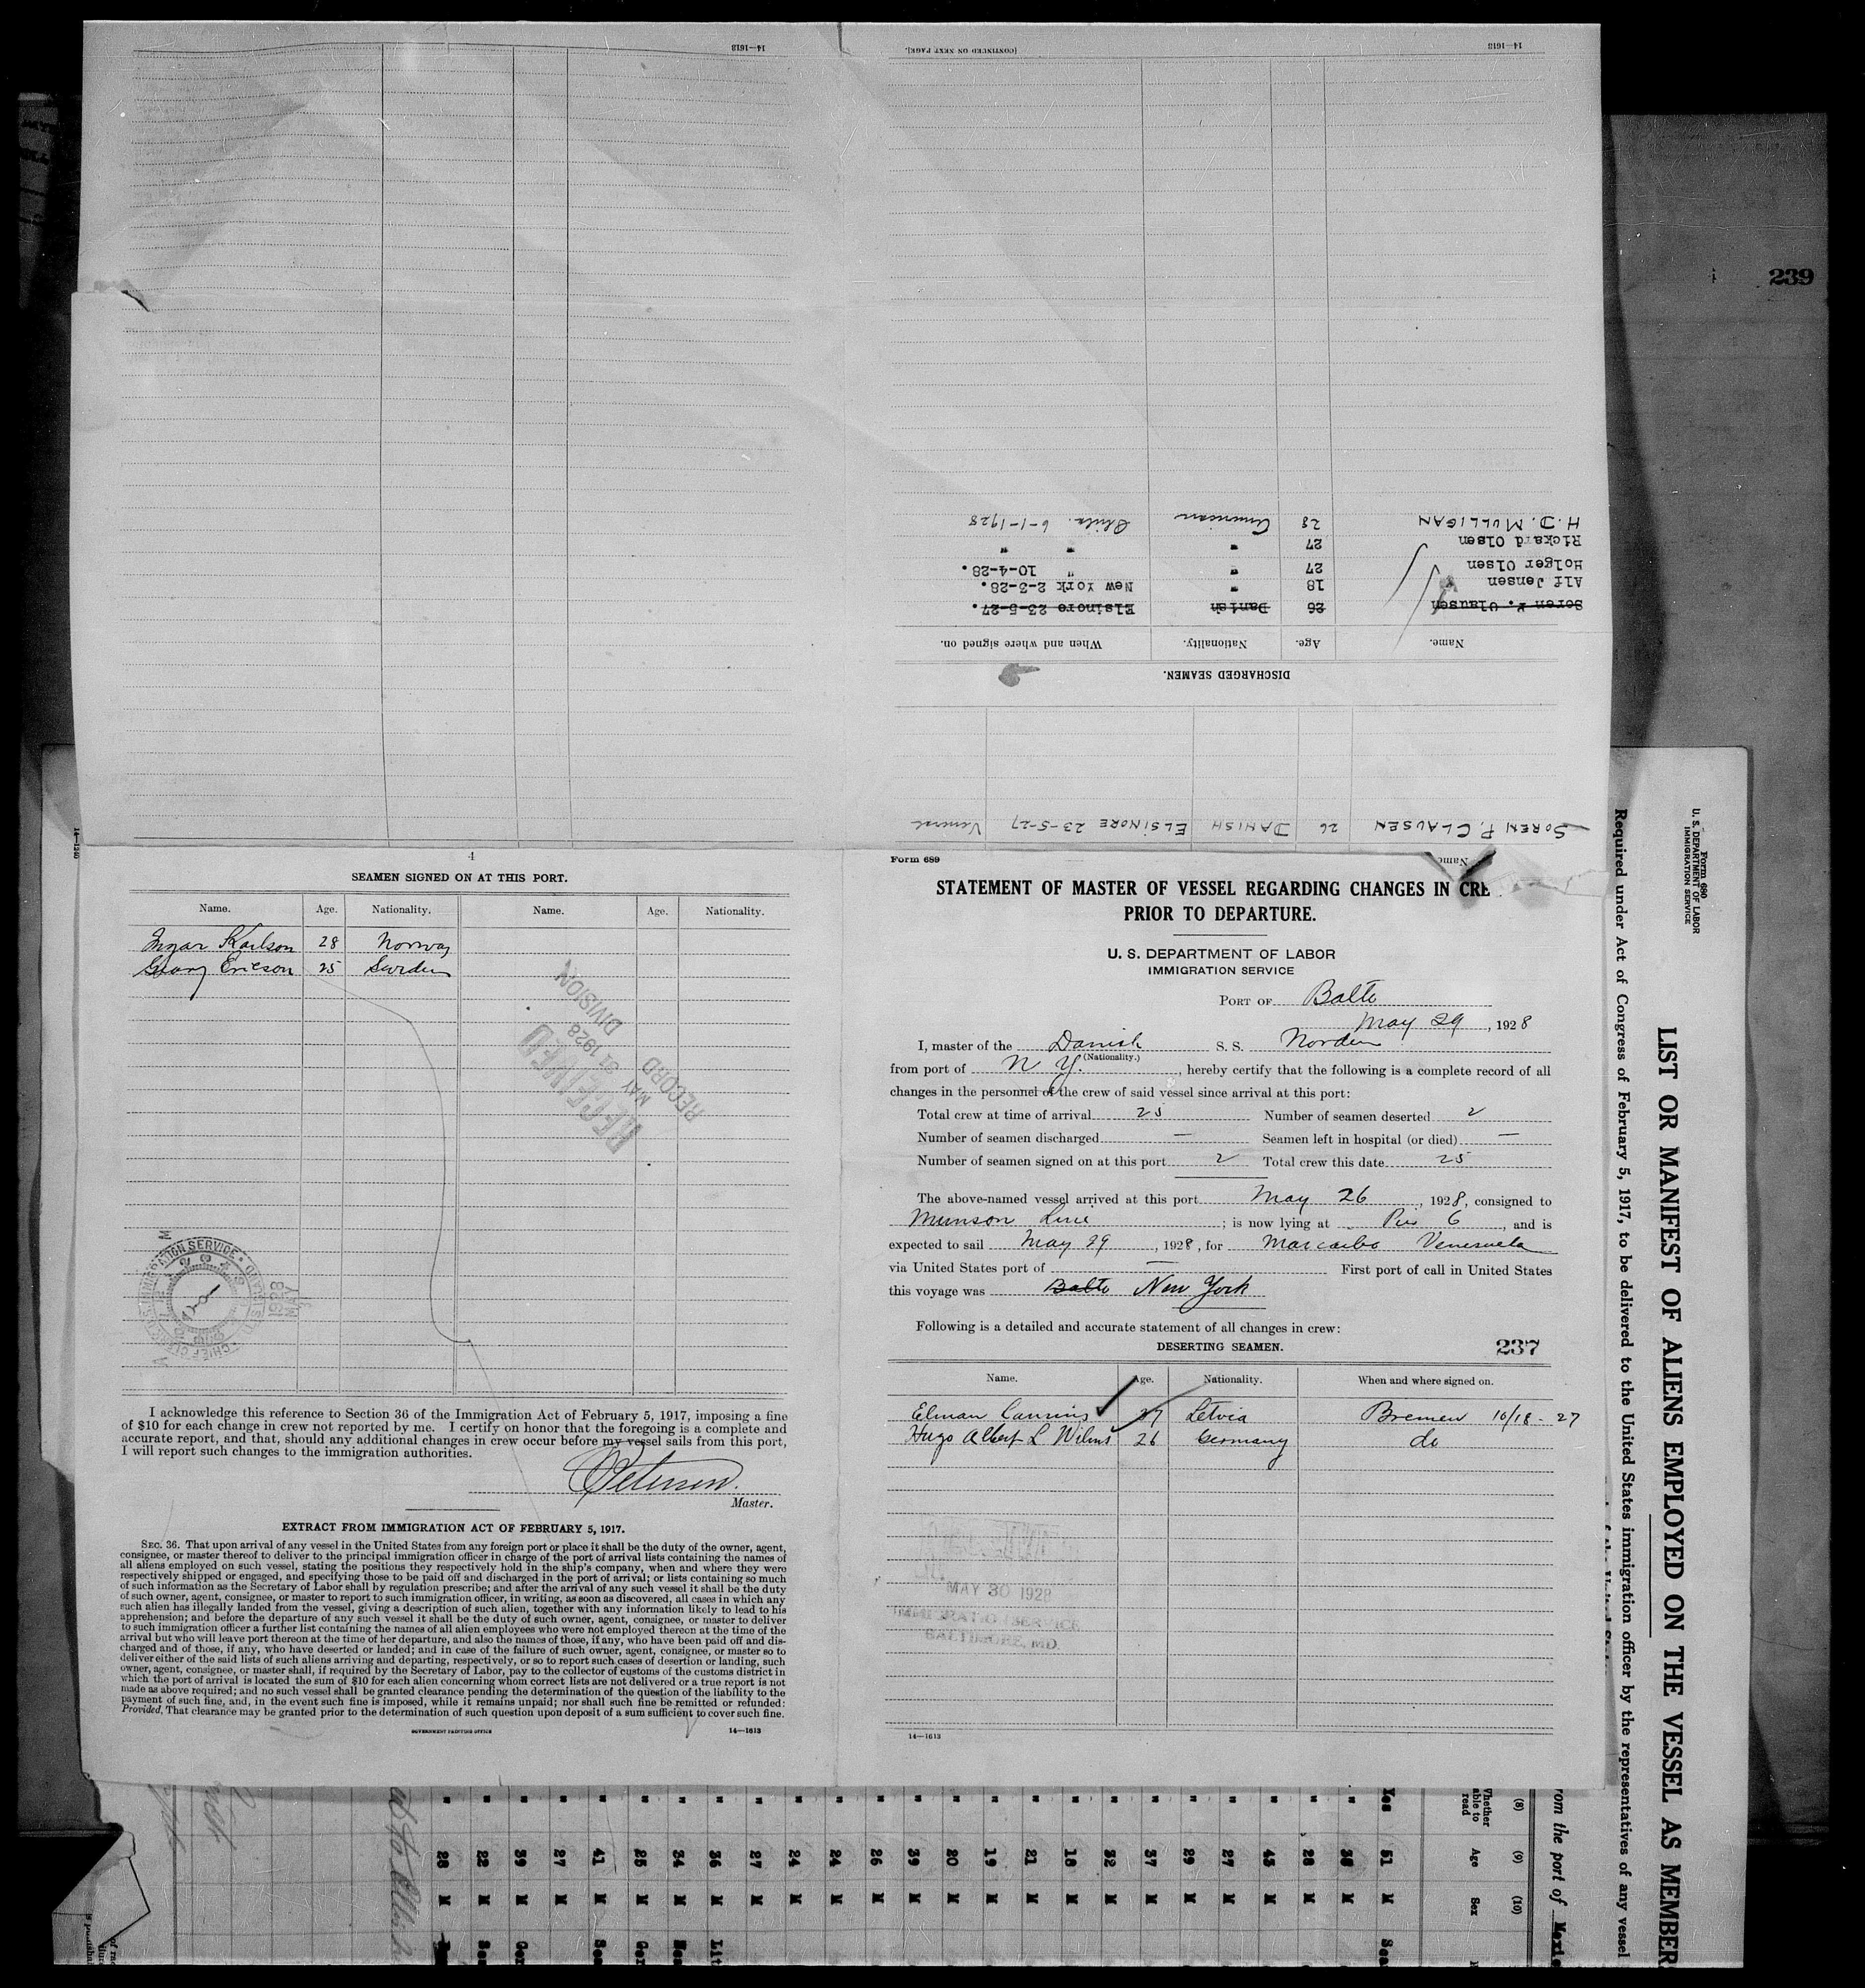 14—1613
[CONTINUED ON NEXT PAGE].
14—1613
H. D. MULLIGAN 28 American Phila. 6-1-1928
Rickard Olsen 27 " " "
Holger Olsen 27 " " 10-4-28.
Alf Jensen 18 " New York 2-3-28.
Soren P. Clausen 26 Danish Elsinore 23-5-27.
Name. Age. Nationality. When and where signed on.
DISCHARGED SEAMEN.
SOREN P. CLAUSEN 26 DANISH ELSINORE 23-5-27
Name
239
4
SEAMEN SIGNED ON AT THIS PORT.
Name. Age. Nationality. Name. Age. Nationality.
Ingar Karlson 28 Norway
Georg Ericson 25 Sweden
RECEIVED
MAY 31 1928
RECORD DIVISION
I acknowledge this reference to Section 36 of the Immigration Act of February 5, 1917, imposing a fine
of $10 for each change in crew not reported by me. I certify on honor that the foregoing is a complete and
accurate report, and that, should any additional changes in crew occur before my vessel sails from this port,
I will report such changes to the immigration authorities.
Master.
EXTRACT FROM IMMIGRATION ACT OF FEBRUARY 5, 1917.
SEC. 36. That upon arrival of any vessel in the United States from any foreign port or place it shall be the duty of the owner, agent,
consignee, or master thereof to deliver to the principal immigration officer in charge of the port of arrival lists containing the names of
all aliens employed on such vessel, stating the positions they respectively hold in the ship's company, when and where they were
respectively shipped or engaged, and specifying those to be paid off and discharged in the port of arrival; or lists containing so much
of such information as the Secretary of Labor shall by regulation prescribe; and after the arrival of any such vessel it shall be the duty
of such owner, agent, consignee, or master to report to such immigration officer, in writing, as soon as discovered, all cases in which any
such alien has illegally landed from the vessel, giving a description of such alien, together with any information likely to lead to his
apprehension; and before the departure of any such vessel it shall be the duty of such owner, agent, consignee, or master to deliver
to such immigration officer a further list containing the names of all alien employees who were not employed thereon at the time of the
arrival but who will leave port thereon at the time of her departure, and also the names of those, if any, who have been paid off and dis-
charged and of those, if any, who have deserted or landed; and in case of the failure of such owner, agent, consignee, or master so to
deliver either of the said lists of such aliens arriving and departing, respectively, or so to report such cases of desertion or landing, such
owner, agent, consignee, or master shall, if required by the Secretary of Labor, pay to the collector of customs of the customs district in
which the port of arrival is located the sum of $10 for each alien concerning whom correct lists are not delivered or a true report is not
made as above required; and no such vessel shall be granted clearance pending the determination of the question of the liability to the
payment of such fine, and, in the event such fine is imposed, while it remains unpaid; nor shall such fine be remitted or refunded:
Provided, That clearance may be granted prior to the determination of such question upon deposit of a sum sufficient to cover such fine.
GOVERNMENT PRINTING OFFICE 14—1613
Form 689
STATEMENT OF MASTER OF VESSEL REGARDING CHANGES IN CRE
PRIOR TO DEPARTURE.
U. S. DEPARTMENT OF LABOR
IMMIGRATION SERVICE
PORT OF Balto
May 29, 1928
I, master of the Danish S. S. Norden
(Nationality.)
from port of N Y., hereby certify that the following is a complete record of all
changes in the personnel of the crew of said vessel since arrival at this port:
Total crew at time of arrival 25 Number of seamen deserted 2
Number of seamen discharged — Seamen left in hospital (or died) —
Number of seamen signed on at this port 2 Total crew this date 25
The above-named vessel arrived at this port May 26, 1928, consigned to
Munson Line; is now lying at Pier 6, and is
expected to sail May 29, 1928, for Marcaibo Venesuela
via United States port of — First port of call in United States
this voyage was Balto New York
Following is a detailed and accurate statement of all changes in crew:
DESERTING SEAMEN. 237
Name. Age. Nationality. When and where signed on.
Elman 27 Letvia Bremen 10/18-27
Hugo Albert L Wilms 26 Germany do
MAY 30 1928
IMMIGRATION SERVICE
BALTIMORE, MD.
14—1613
Form 680
U. S. DEPARTMENT OF LABOR
IMMIGRATION SERVICE
LIST OR MANIFEST OF ALIENS EMPLOYED ON THE VESSEL AS MEMBER
Required under Act of Congress of February 5, 1917, to be delivered to the United States immigration officer by the representatives of any vessel
rom the port of
(8) (9) (10)
Whether able to read Age Sex
Yes 51 M
" 38 M
" 28 M
" 43 M
" 27 M
" 29 M
" 37 M
" 32 M
" 18 M
" 21 M
" 19 M
" 20 M
" 39 M
" 26 M
" 24 M
" 24 M
" 27 M
" 36 M Lit
" 34 M
" 25 M Ger
" 41 M
" 27 M
" 39 M Ger
" 22 M
" 28 M